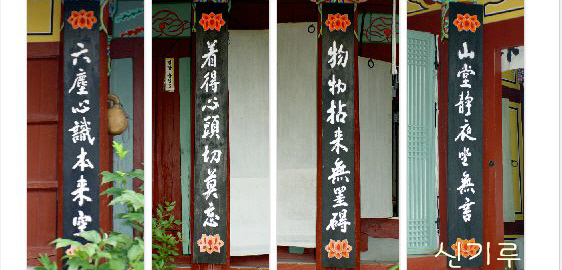 六塵心識本来空
着得心頭切莫忘
物物拈来無罣碍
山堂靜夜坐無言
신기루